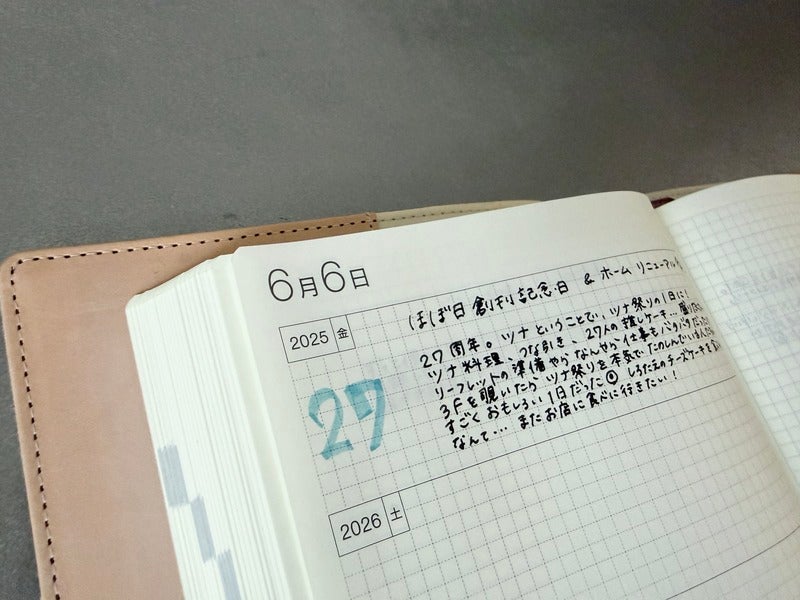 6月6日
ほぼ日創刊記念日 & ホームリニューアル
2025 金
27
27周年。ツナということで、ツナ祭りの1日に!
ツナ料理、つな引き、27人の推しケーキ…
リーフレットの準備やらなんやら仕事もバタバタだった
3Fを覗いたら ツナ祭りを本気でたのしんでいる
すごくおもしろい1日だった しろたえのチーズケーキ
なんて… またお店に食べに行きたい!
2026 土